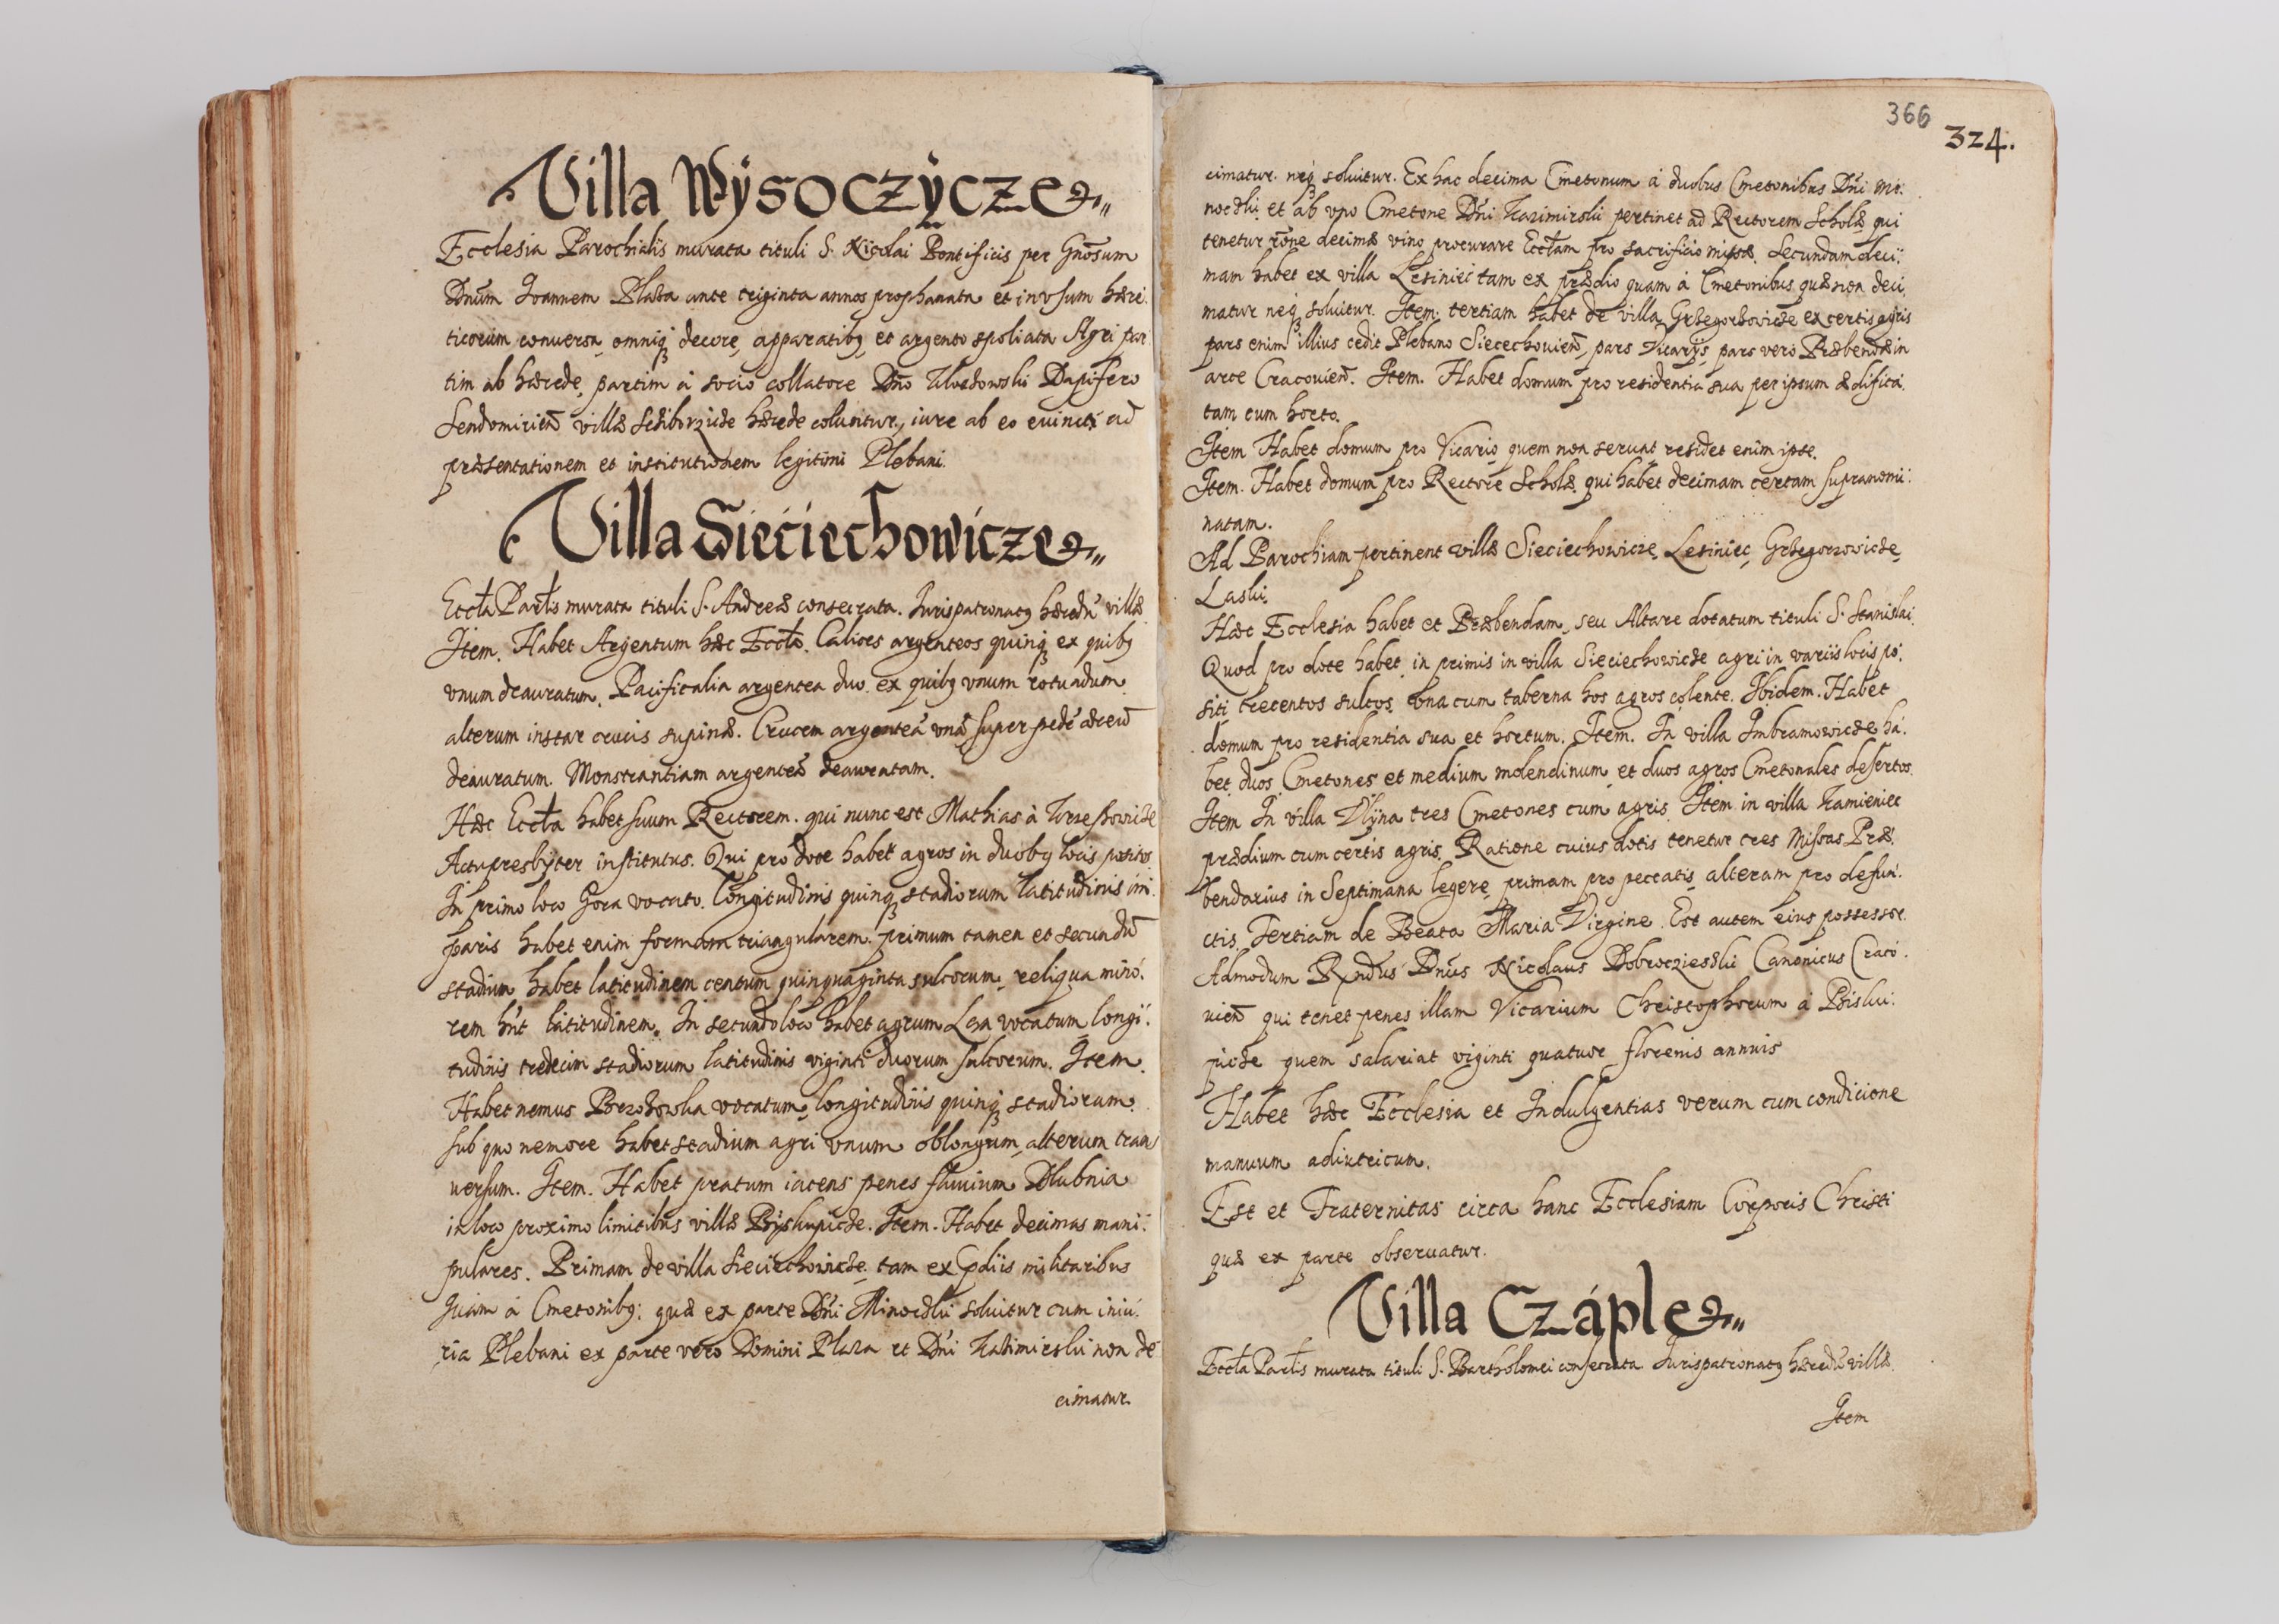 Villa Wÿsoczÿcze
Ecclesia Parochialis murata tituli S. Nicolai Pontificis per Gnõsum
Dnũm Joannem Plaza ante triginta annos prophanata et in vsum hæri
ticorum conuersa, omniq₃ decore, apparatibꝫ et argento spoliata Agri par
tim ab hærede, partim à socio collatore Dño Dapifero
Sendomirieñ villæ hærede coluntur, iure ab eo euincti ad
præsentationem et institutionem legitimi Plebani.
Villa Siećiechowicze
Eccła Parłis murata tituli S. Andreæ consecrata. Jurispatronatꝫ hæredũ villæ
Jtem. Habet Argentum hæc Eccła. Calices argenteos quinq₃ ex quibꝫ
vnum deauratum. Pacificalia argentea duo. ex quibꝫ vnum rotundum
alterum instar crucis supinæ. Crucem argenteã vnã super pedẽ æreũ
deauratum. Monstrantiam argenteã deauratam.
Hæc Eccła habet suum Rectorem. qui nunc est Mathias à
Actupresbyter institutus. Qui pro dote habet agros in duobꝫ locis positos
In primo loco Gora vocato. longitudinis quinq₃ stadiorum latitudinis im
paris habet enim formam triangularem. primum tamen et secundũ
stadium habet latitudinem centum quinquaginta sulcorum, reliqua mino:
rem hñt latitudinem. In secundo loco habet agrum vocatum longi:
tudinis tredecim stadiorum latitudinis viginti duorum sulcorum. Jtem.
Habet nemus vocatum, longitudinis quinq₃ stadiorum
sub quo nemore habet stadium agri vnum oblongum, alterum trans
uersum. Jtem. Habet pratum iacens penes fluuium Dlubnia
in loco proximo limitibus villæ Biskupicze. Jtem. Habet decimas mani:
pulares. Primam de villa Sieciechowicze tam ex pdiis militaribus
quam à Cmetonibꝫ: quæ ex parte Dñi Minoczki soluitur cum iniu:
ria Plebani ex parte vero Domini Plaza et Dñi Kazimirski non de
cimatur.
366
324.
cimatur. neq₃ soluitur. Ex hac decima Cmetonum à duobus Cmetonibus Dñi Mi:
noczki et ab vno Cmetone Dñi Kazimirski pertinet ad Rectorem Scholæ qui
tenetur rõne decimæ vino procurare Eccłam pro sacrificio missæ. Secundam deci:
mam habet ex villa Lesiniec tam ex prædio quam à Cmetonibus quæ non deci
matur neq₃ soluitur. Jtem. tertiam habet de villa Grzegorzowicze ex certis agris
pars enim illius cedit Plebano Siecechouieñ, pars Vicarijs, pars vero Præbendæ in
arce Cracouieñ. Jtem. Habet domum pro residentia sua per ipsum ædifica
tam cum horto.
Jtem Habet domum pro Vicario quem non seruat residet enim ipse.
Jtem. Habet domum pro Rectore Scholæ qui habet decimam certam supranomi:
natam.
Ad Parochiam pertinent villæ Sieciechowicze, Lesiniec, Grzegorzowicze,
Laski.
Hæc Ecclesia habet et Præbendam, seu Altare dotatum tituli S. Stanislai.
Quod pro dote habet in primis in villa Sieciechowicze agri in variis locis po:
siti trecentos sulcos, vna cum taberna hos agros colente. Jbidem. Habet
domum pro residentia sua et hortum. Jtem. In villa Imbramowicze ha:
bet duos Cmetones et medium molendinum, et duos agros Cmetonales desertos.
Jtem In villa tres Cmetones cum agris. Jtem in villa Kamieniec
prædium cum certis agris. Ratione cuius dotis tenetur tres Missas Præ:
bendarius in Septimana legere, primam pro peccatis, alteram pro defun:
ctis. Tertiam de Beata Maria Virgine. Est autem eius possessor
Admodum Rñdus Dñus Nicolaus Dobroczieski Canonicus Craco:
uieñ qui tenet penes illam Vicarium Christophorum à Biskui:
picze quem salariat viginti quatuor florenis annuis
Habet hæc Ecclesia et Indulgentias verum cum condicione
manuum adiutricum.
Est et Fraternitas circa hanc Ecclesiam Corporis Christi
quæ ex parte obseruatur.
Villa Czáple
Eccła Parłis murata tituli S. Bartholomei consecrata Jurispatronatꝫ hæredũ villæ
Jtem